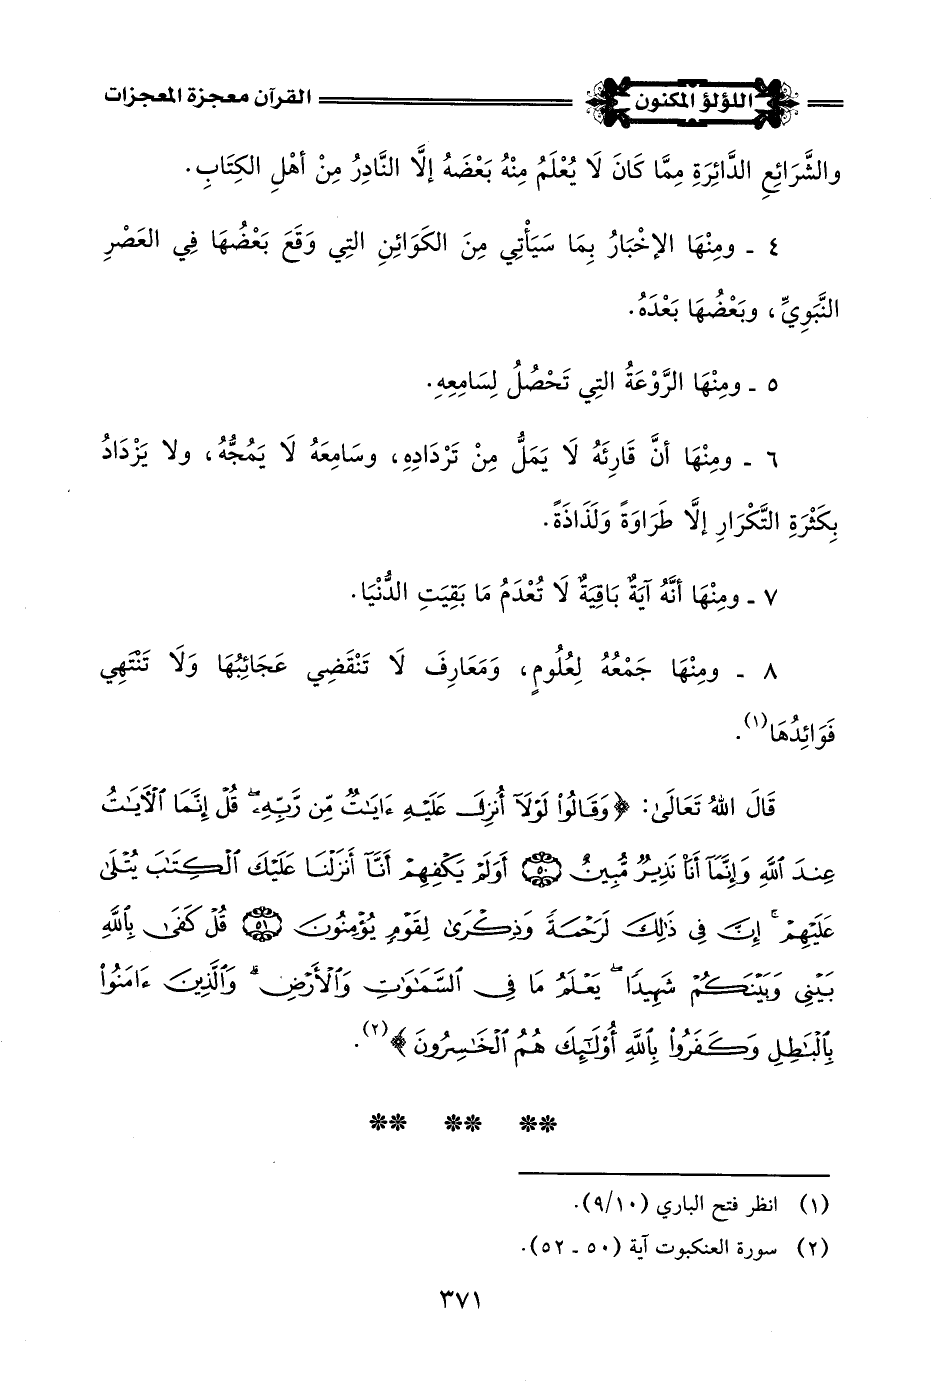 اللؤلؤ المكنون القرآن معجزة المعجزات
والشَّرَائِعِ الدَّائِرَةِ مِمَّا كَانَ لَا يُعْلَمُ مِنْهُ بَعْضَهُ إلَّا النَّادِرُ مِنْ أهْلِ الكِتَابِ.
٤ ـ ومِنْهَا الإخْبَارُ بِمَا سَيَأْتِي مِنَ الكَوَائِنِ التِي وَقَعَ بَعْضُهَا فِي العَصْرِ
النَّبَوِيِّ، وبَعْضُهَا بَعْدَهُ.
٥ ـ ومِنْهَا الرَّوْعَةُ التِي تَحْصُلُ لِسَامِعِهِ.
٦ ـ ومِنْهَا أنَّ قَارِئَهُ لَا يَمَلُّ مِنْ تَرْدَادِهِ، وسَامِعَهُ لَا يَمُجُّهُ، ولا يَزْدَادُ
بِكَثْرَةِ التَّكْرَارِ إلَّا طَرَاوَةً وَلَذَاذَةً.
٧ ـ ومِنْهَا أنَّهُ آيَةٌ بَاقِيَةٌ لَا تُعْدَمُ مَا بَقِيَتِ الدُّنْيَا.
٨ ـ ومِنْهَا جَمْعُهُ لِعُلُومٍ، وَمَعَارِفَ لَا تَنْقَضِي عَجَائِبُهَا وَلَا تَنْتَهِي
فَوَائِدُهَا(١).
قَالَ اللهُ تَعَالَى: ﴿وَقَالُوا۟ لَوْلَآ أُنزِلَ عَلَيْهِ ءَايَٰتٌ مِّن رَّبِّهِۦ ۖ قُلْ إِنَّمَا ٱلْءَايَٰتُ
عِندَ ٱللَّهِ وَإِنَّمَآ أَنَا۠ نَذِيرٌ مُّبِينٌ ﴿٥٠﴾ أَوَلَمْ يَكْفِهِمْ أَنَّآ أَنزَلْنَا عَلَيْكَ ٱلْكِتَٰبَ يُتْلَىٰ
عَلَيْهِمْ ۚ إِنَّ فِى ذَٰلِكَ لَرَحْمَةً وَذِكْرَىٰ لِقَوْمٍ يُؤْمِنُونَ ﴿٥١﴾ قُلْ كَفَىٰ بِٱللَّهِ
بَيْنِى وَبَيْنَكُمْ شَهِيدًا ۖ يَعْلَمُ مَا فِى ٱلسَّمَٰوَٰتِ وَٱلْأَرْضِ ۗ وَٱلَّذِينَ ءَامَنُوا۟
بِٱلْبَٰطِلِ وَكَفَرُوا۟ بِٱللَّهِ أُو۟لَٰٓئِكَ هُمُ ٱلْخَٰسِرُونَ﴾(٢).
** ** **
(١) انظر فتح الباري (٩/١٠).
(٢) سورة العنكبوت آية (٥٠ ـ ٥٢).
٣٧١